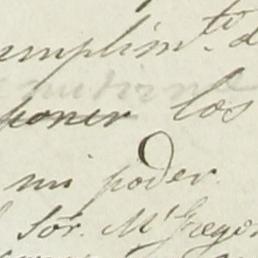 cumplim.to d
poner los
mi poder.
Sör. McGregor